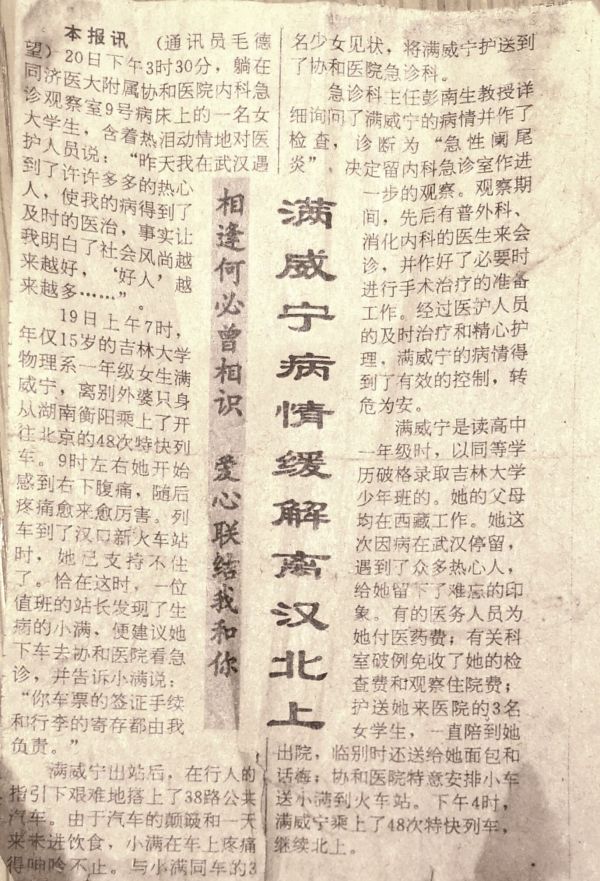 相逢何必曾相识 爱心联结我和你
满威宁病情缓解离汉北上
本报讯 (通讯员毛德
望) 20日下午3时30分，躺在
同济医大附属协和医院内科急
诊观察室9号病床上的一名女
大学生，含着热泪动情地对医
护人员说：“昨天我在武汉遇
到了许许多多的热心
人，使我的病得到了
及时的医治，事实让
我明白了社会风尚越
来越好，‘好人’越
来越多……”。
19日上午7时，
年仅15岁的吉林大学
物理系一年级女生满
威宁，离别外婆只身
从湖南衡阳乘上了开
往北京的48次特快列
车。9时左右她开始
感到右下腹痛，随后
疼痛愈来愈厉害。列
车到了汉口新火车站
时，她已支持不住
了。恰在这时，一位
值班的站长发现了生
病的小满、便建议她
下车去协和医院看急
诊，并告诉小满说：
“你车票的签证手续
和行李的寄存都由我
负责。”
满威宁出站后，在行人的
指引下艰难地搭上了38路公共
汽车。由于汽车的颠簸和一天
来未进饮食，小满在车上疼痛
得呻吟不止。与小满同车的3
名少女见状，将满威宁护送到
了协和医院急诊科。
急诊科主任彭南生教授详
细询问了满威宁的病情并作了
检查，诊断为“急性阑尾
炎”、决定留内科急诊室作进
一步的观察。观察期
间，先后有普外科、
消化内科的医生来会
诊，并作好了必要时
进行手术治疗的准备
工作。经过医护人员
的及时治疗和精心护
理，满威宁的病情得
到了有效的控制，转
危为安。
满威宁是读高中
一年级时，以同等学
历破格录取吉林大学
少年班的。她的父母
均在西藏工作。她这
次因病在武汉停留，
遇到了众多热心人，
给她留下了难忘的印
象。有的医务人员为
她付医药费；有关科
室破例免收了她的检
查费和观察住院费；
护送她来医院的3名
女学生，一直陪到她
出院，临别时还送给她面包和
话梅；协和医院特意安排小车
送小满到火车站。下午4时，
满威宁乘上了48次特快列车，
继续北上。